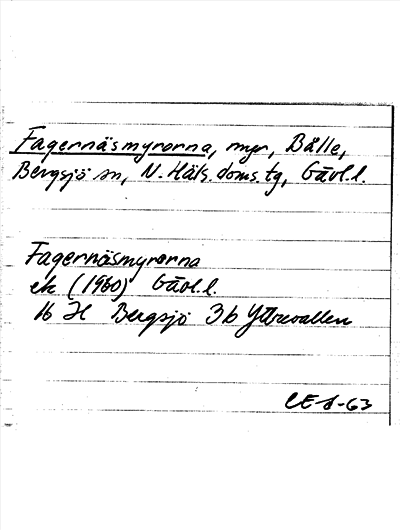 Fagernäsmyrorna, myr, Bålle,
Bergsjö sn, N. Häls. doms. tg, Gävl.l.
Fagernäsmyrorna
ek (1960) Gävl.l.
16 H Bergsjö 3b Yttrevallen
CES-63